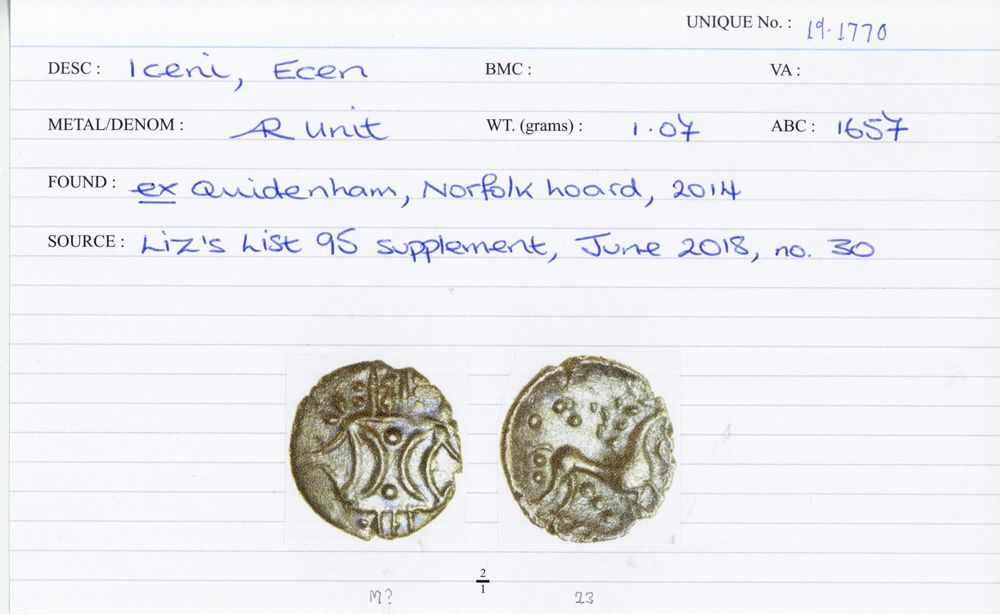 UNIQUE No. : 19.1770
DESC : Iceni, Ecen BMC : VA :
METAL/DENOM : AR Unit WT. (grams) : 1.07 ABC : 1657
FOUND : ex Quidenham, Norfolk hoard, 2014
SOURCE : Liz's List 95 supplement, June 2018, no. 30
2
1
M? 23